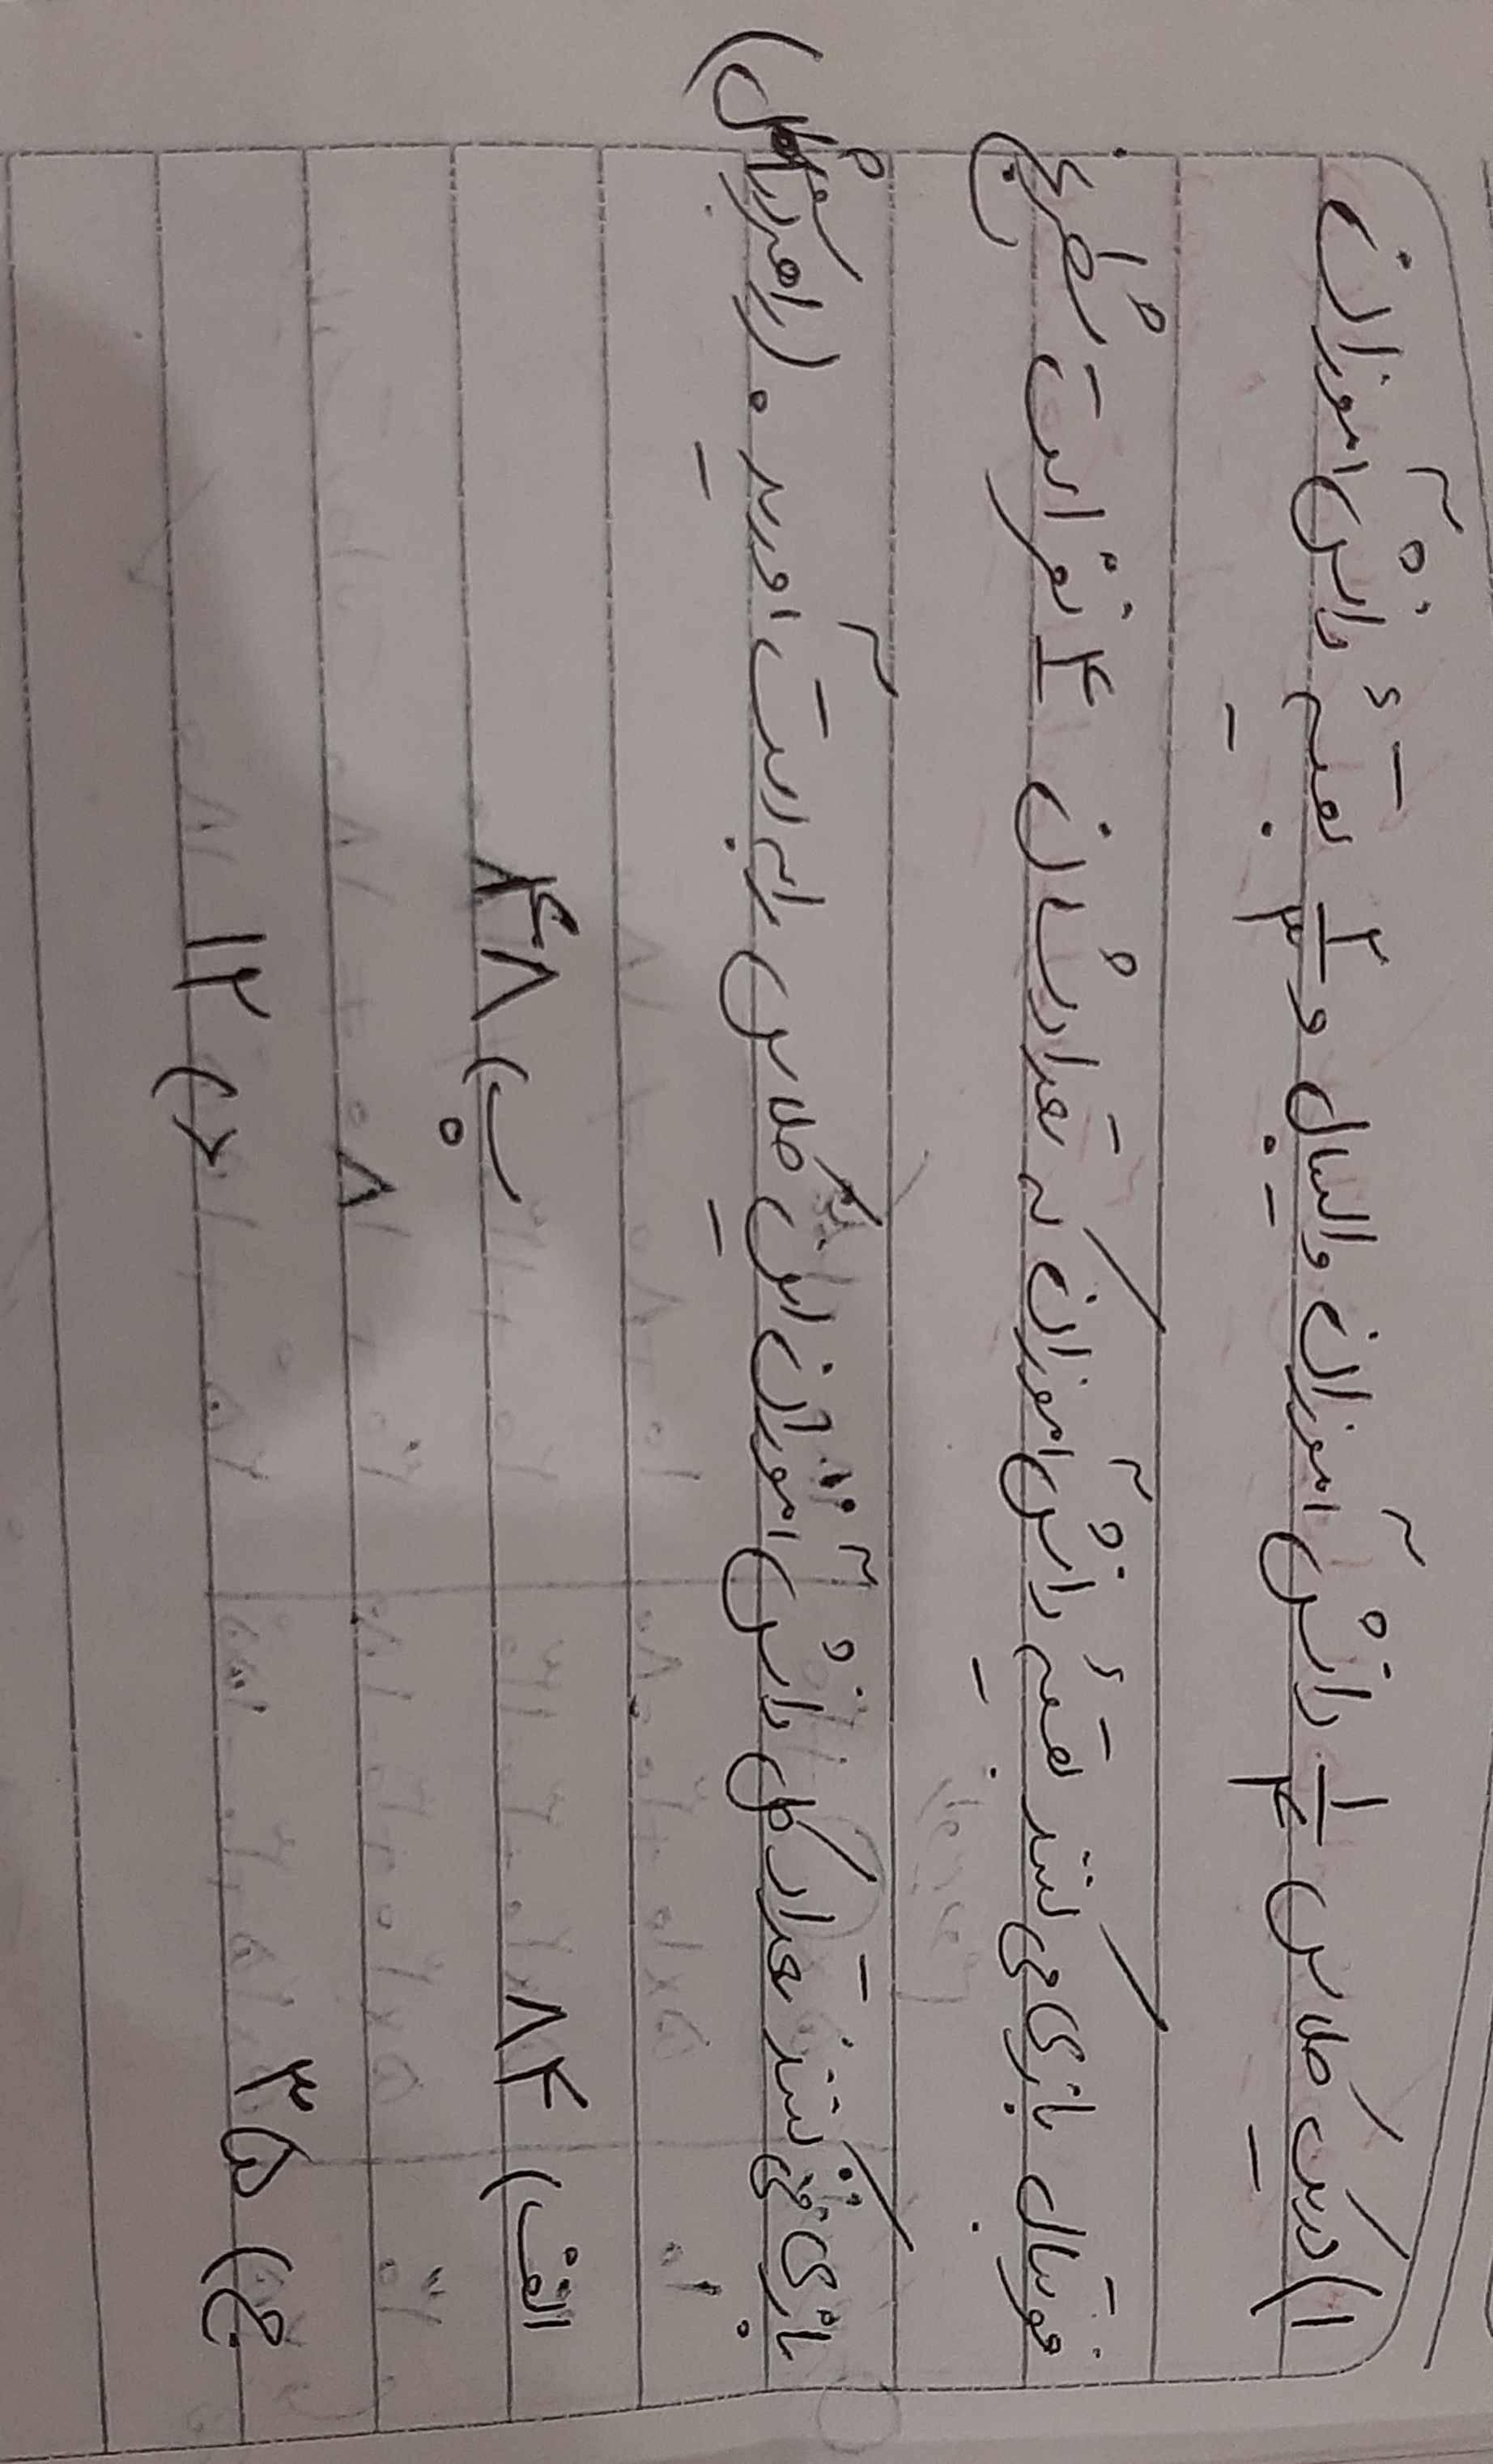 ۱) در یک کلاس ۱/۴ دانش آموزان والیبال و ۲/۳ بقیهٔ دانش آموزان
فوتبال بازی می کنند بقیهٔ دانش آموزان که تعدادشان ۴ نفر است شطرنج
بازی می کنند تعداد کل دانش آموزان این کلاس را به دست آورید . (راهبرد رسم شکل)
الف) ۸۴
ب) ۴۸
۸
ج) ۳۵
د) ۱۲